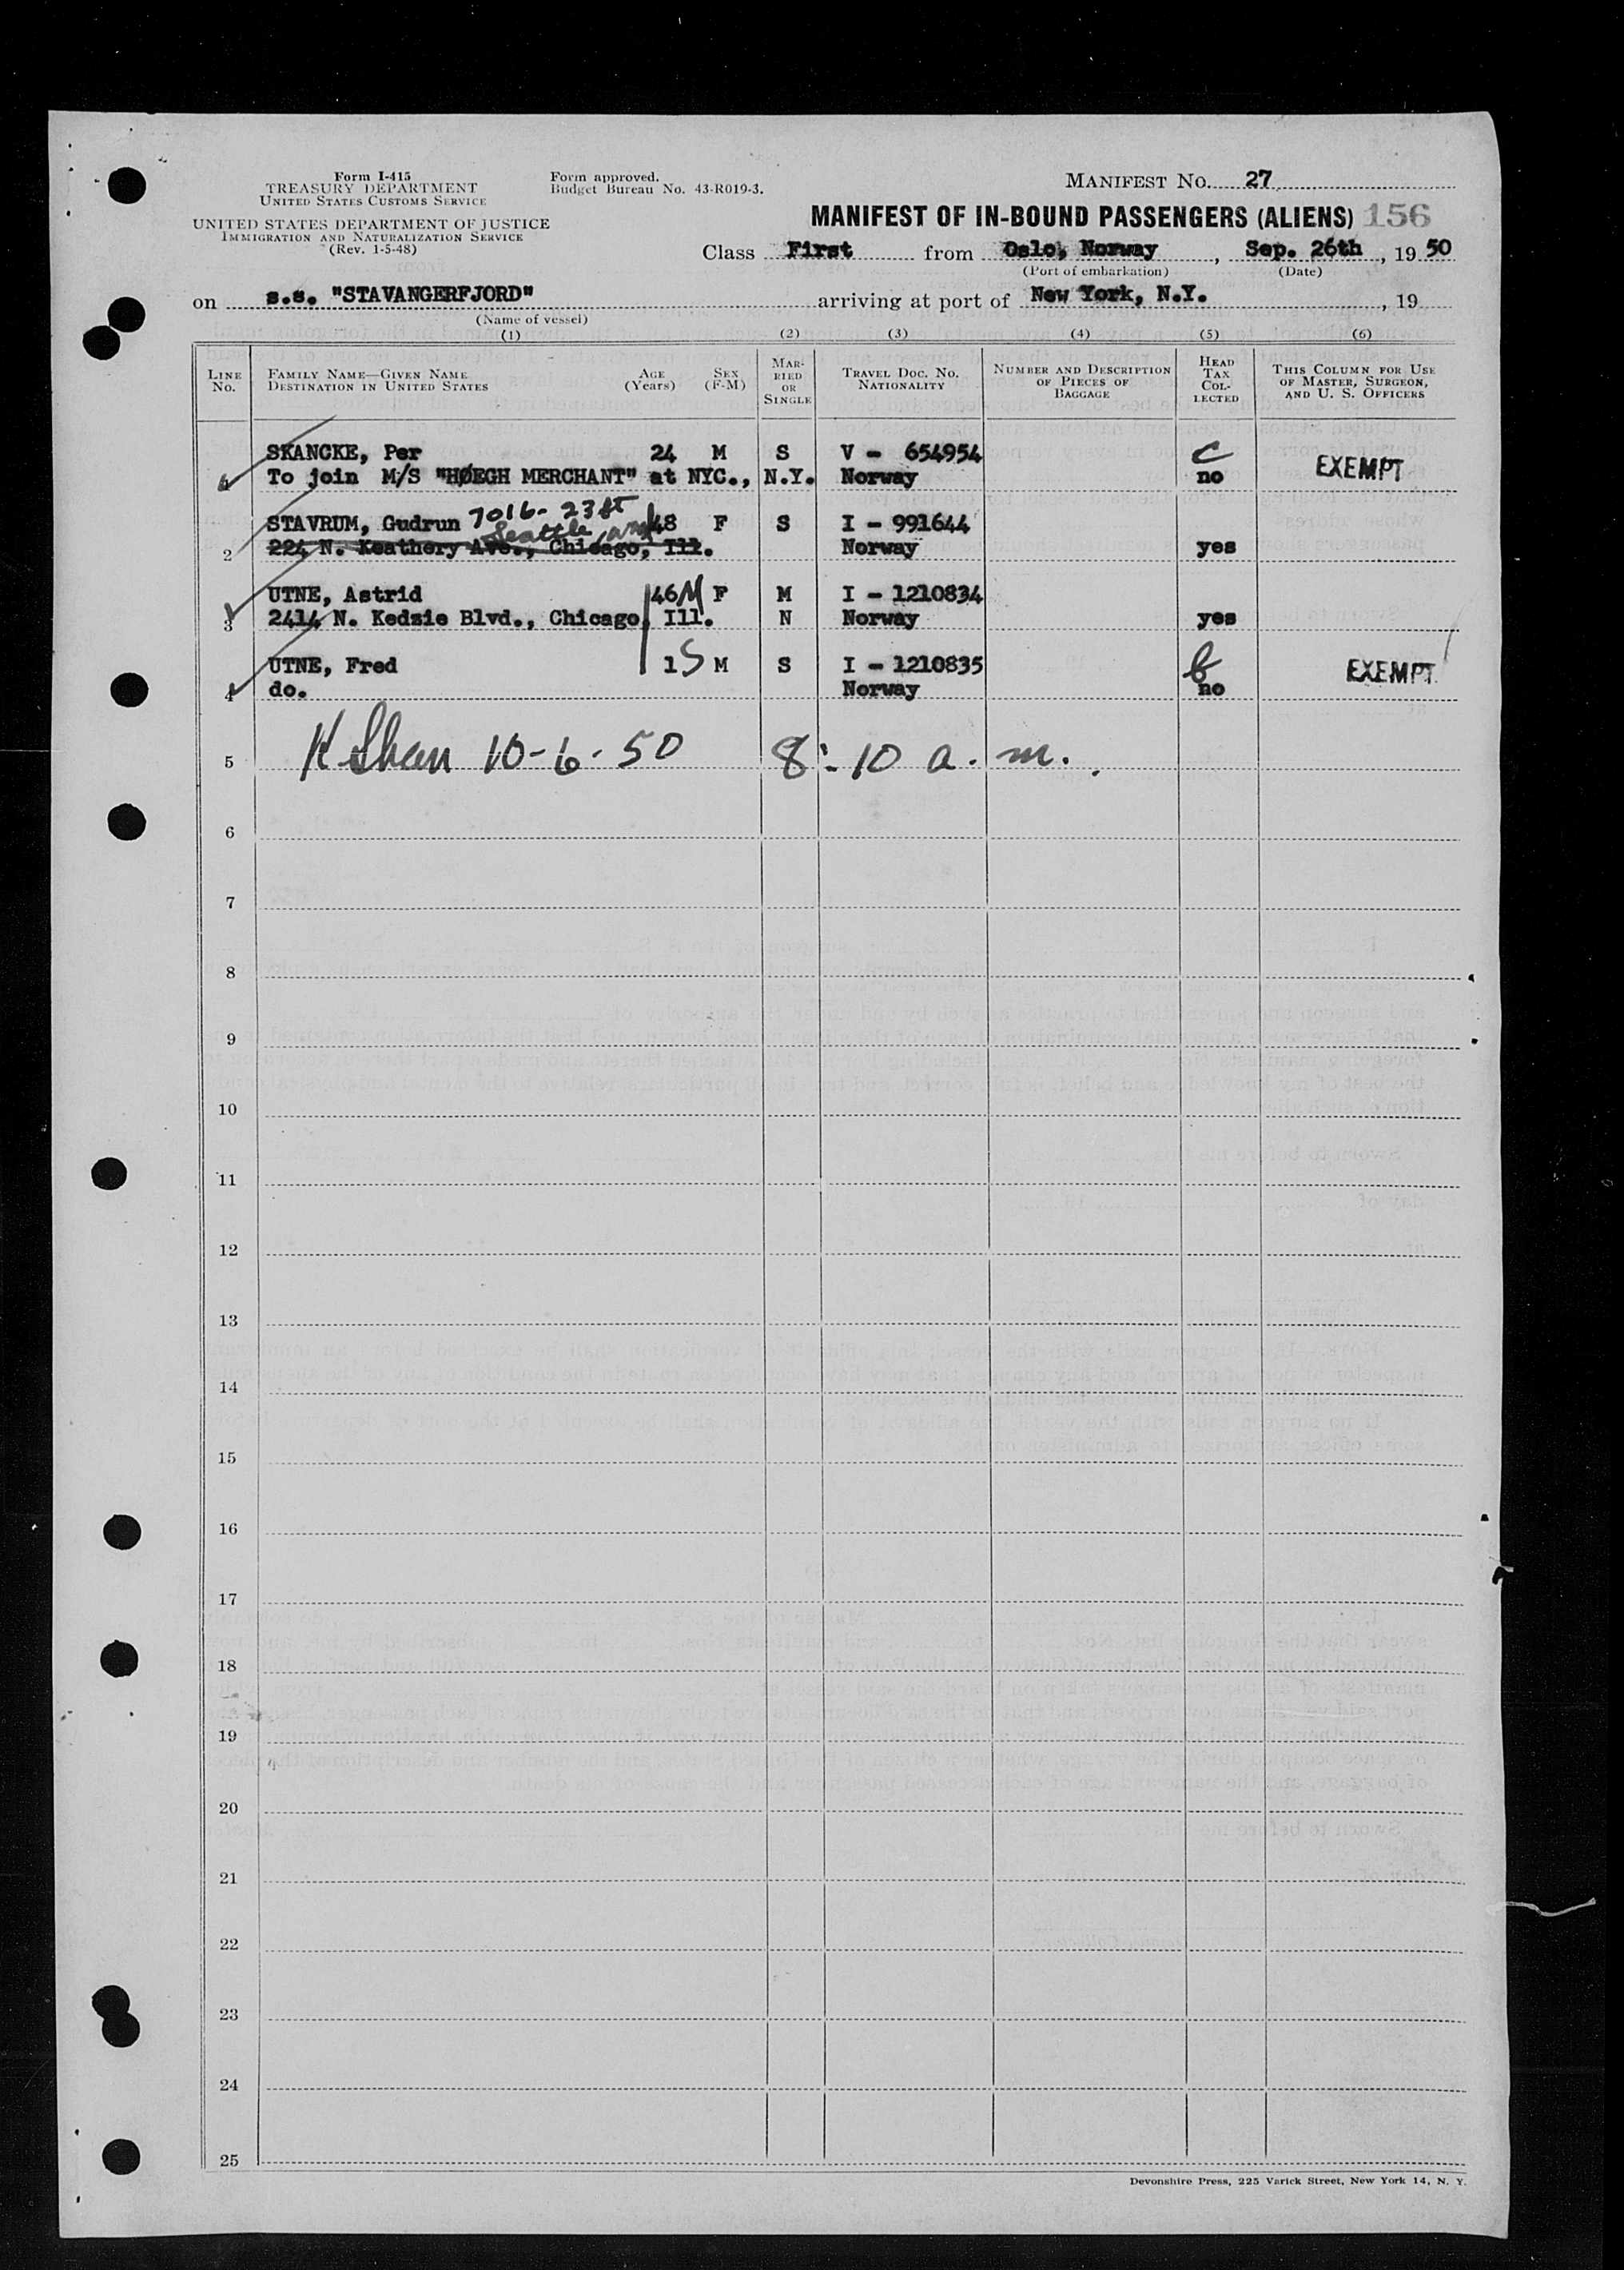 Form I-415
TREASURY DEPARTMENT
UNITED STATES CUSTOMS SERVICE
UNITED STATES DEPARTMENT OF JUSTICE
IMMIGRATION AND NATURALIZATION SERVICE
(Rev. 1-5-48)
Form approved.
Budget Bureau No. 43-R019-3.
MANIFEST NO. 27
MANIFEST OF IN-BOUND PASSENGERS (ALIENS) 156
Class First from Oslo, Norway, Sep. 26th, 19 50
(Port of embarkation) (Date)
on s.s. "STAVANGERFJORD" arriving at port of New York, N.Y., 19
(Name of vessel)
(1) (2) (3) (4) (5) (6)
LINE No. FAMILY NAME—GIVEN NAME DESTINATION IN UNITED STATES AGE (Years) SEX (F-M) MARRIED OR SINGLE TRAVEL DOC. NO. NATIONALITY NUMBER AND DESCRIPTION OF PIECES OF BAGGAGE HEAD TAX COLLECTED THIS COLUMN FOR USE OF MASTER, SURGEON, AND U. S. OFFICERS
SKANCKE, Per 24 M S V - 654954 C
To join M/S "HØEGH MERCHANT" at NYC., N.Y. Norway no EXEMPT
STAVRUM, Gudrun 7016-23rd 48 F S I - 991644
Seattle
2 224 N. Keathery Ave., Chicago, Ill. Norway yes
UTNE, Astrid 46 M F M I - 1210834
3 2414 N. Kedzie Blvd., Chicago, Ill. N Norway yes
UTNE, Fred 1 S M S I - 1210835 EXEMPT
4 do. Norway no
5 10-6-50 8:10 a.m.
6
7
8
9
10
11
12
13
14
15
16
17
18
19
20
21
22
23
24
25
Devonshire Press, 225 Varick Street, New York 14, N. Y.